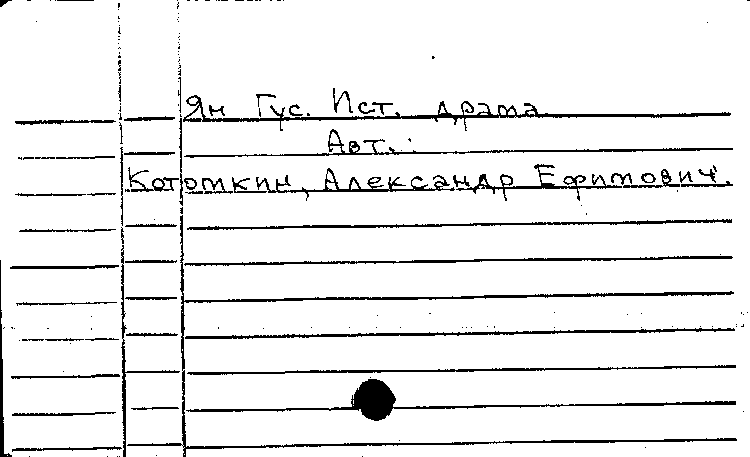 Ян Гус. Ист. драма
Авт.:
Котомкин, Александр Ефимович.